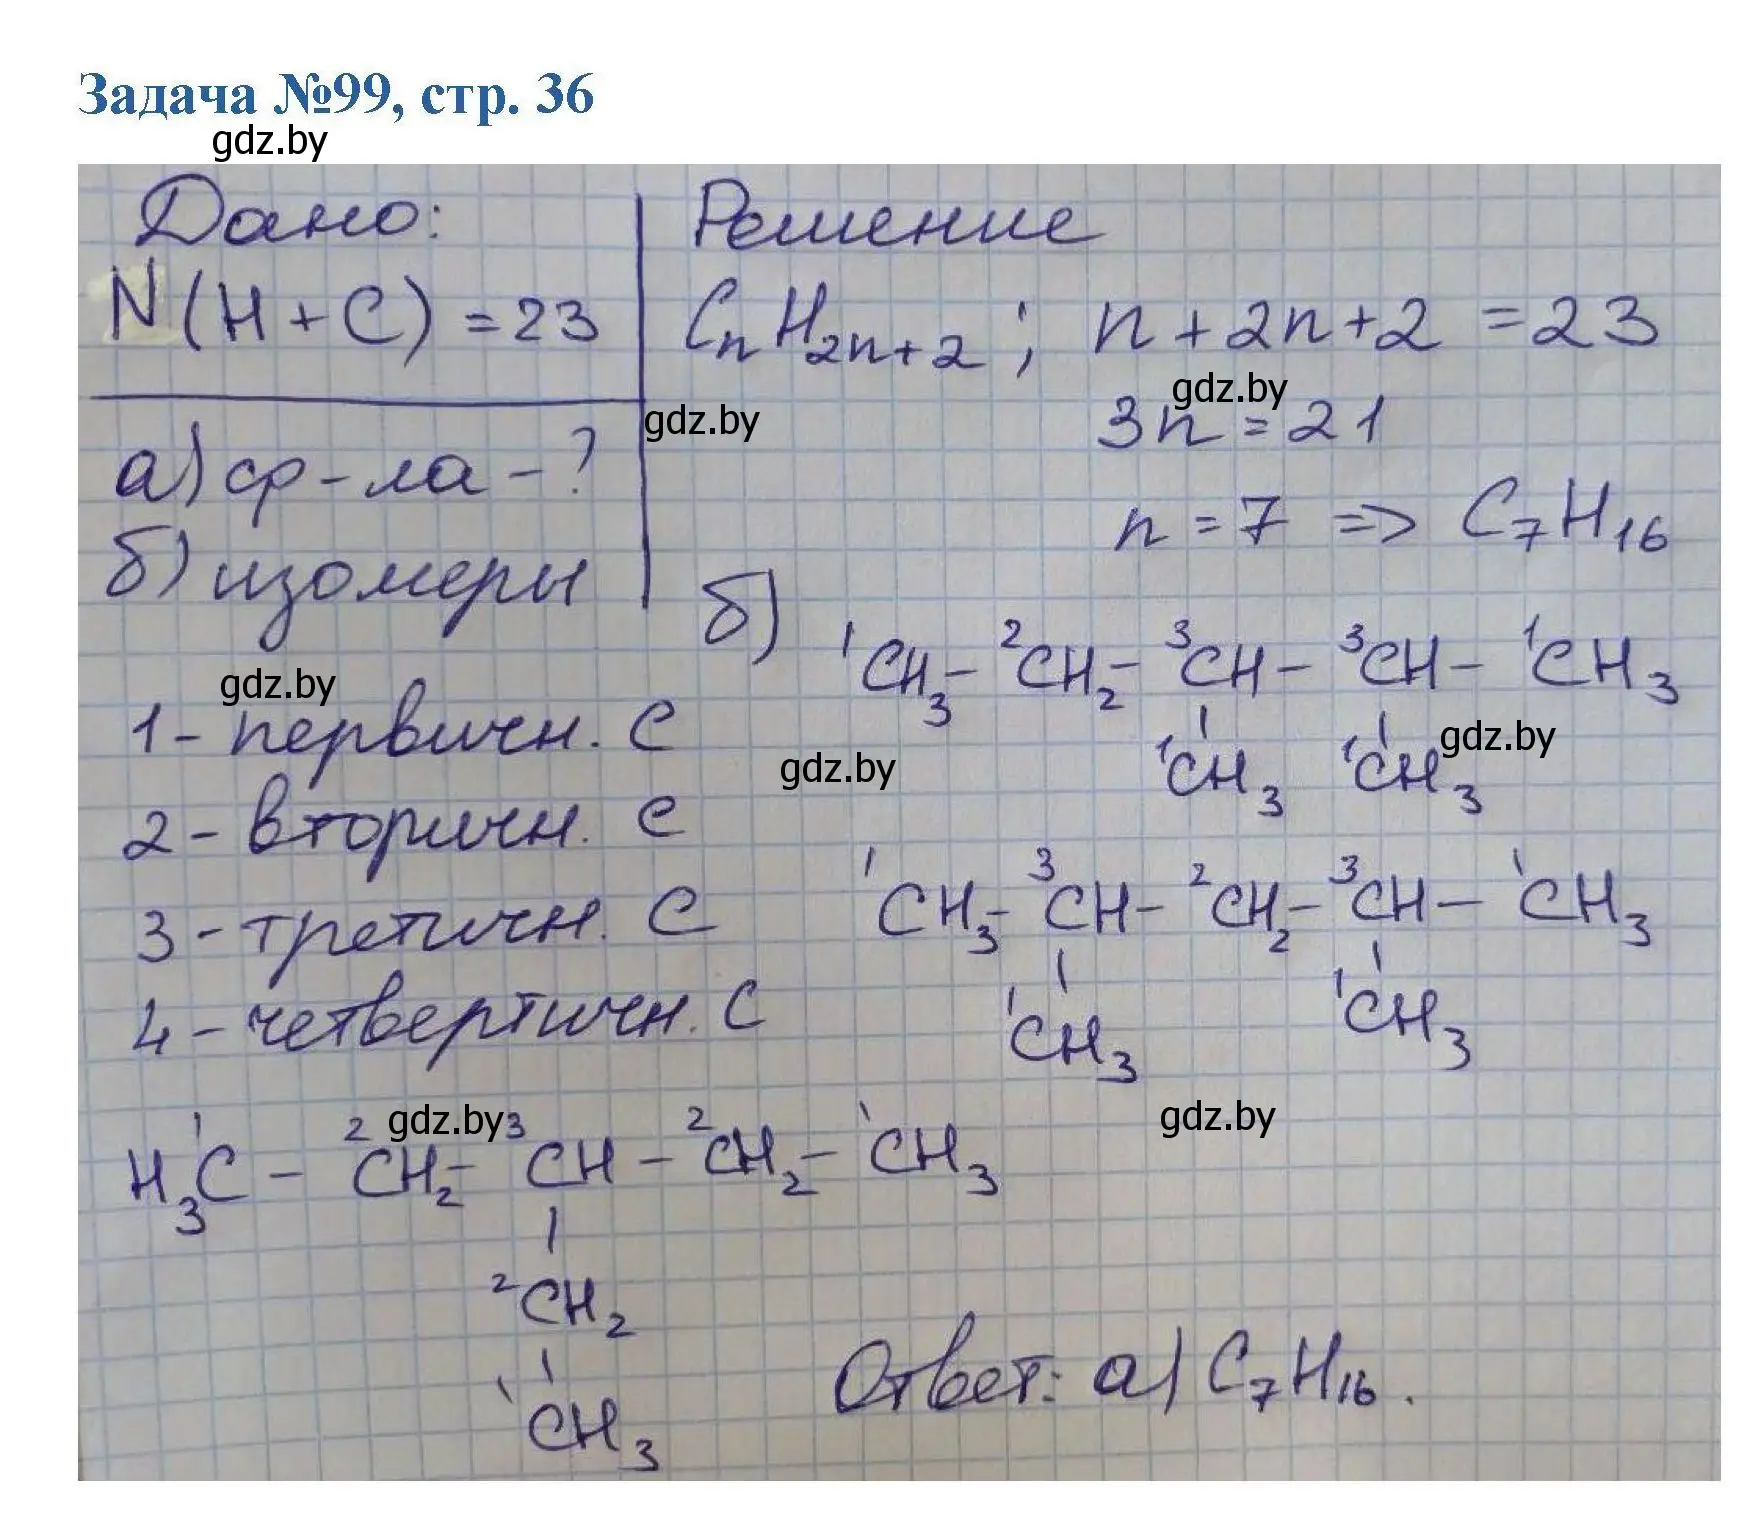 Задача №99, стр. 36
gdz.by
Дано:
N(H+C) = 23
а) ф-ла - ?
б) изомеры
Решение
CnH2n+2 ; n + 2n + 2 = 23
gdz.by
gdz.by
3n = 21
n = 7 => C7H16
б)
1CH3 - 2CH2 - 3CH - 3CH - 1CH3
1CH3 1CH3
gdz.by
gdz.by
gdz.by
1 - первичн. С
2 - вторичн. С
3 - третичн. С
4 - четвертичн. С
1CH3 - 3CH - 2CH2 - 3CH - 1CH3
1CH3 1CH3
gdz.by
gdz.by
H3 1C - 2CH2 - 3CH - 2CH2 - 1CH3
2CH2
1CH3
Ответ: а) C7H16.